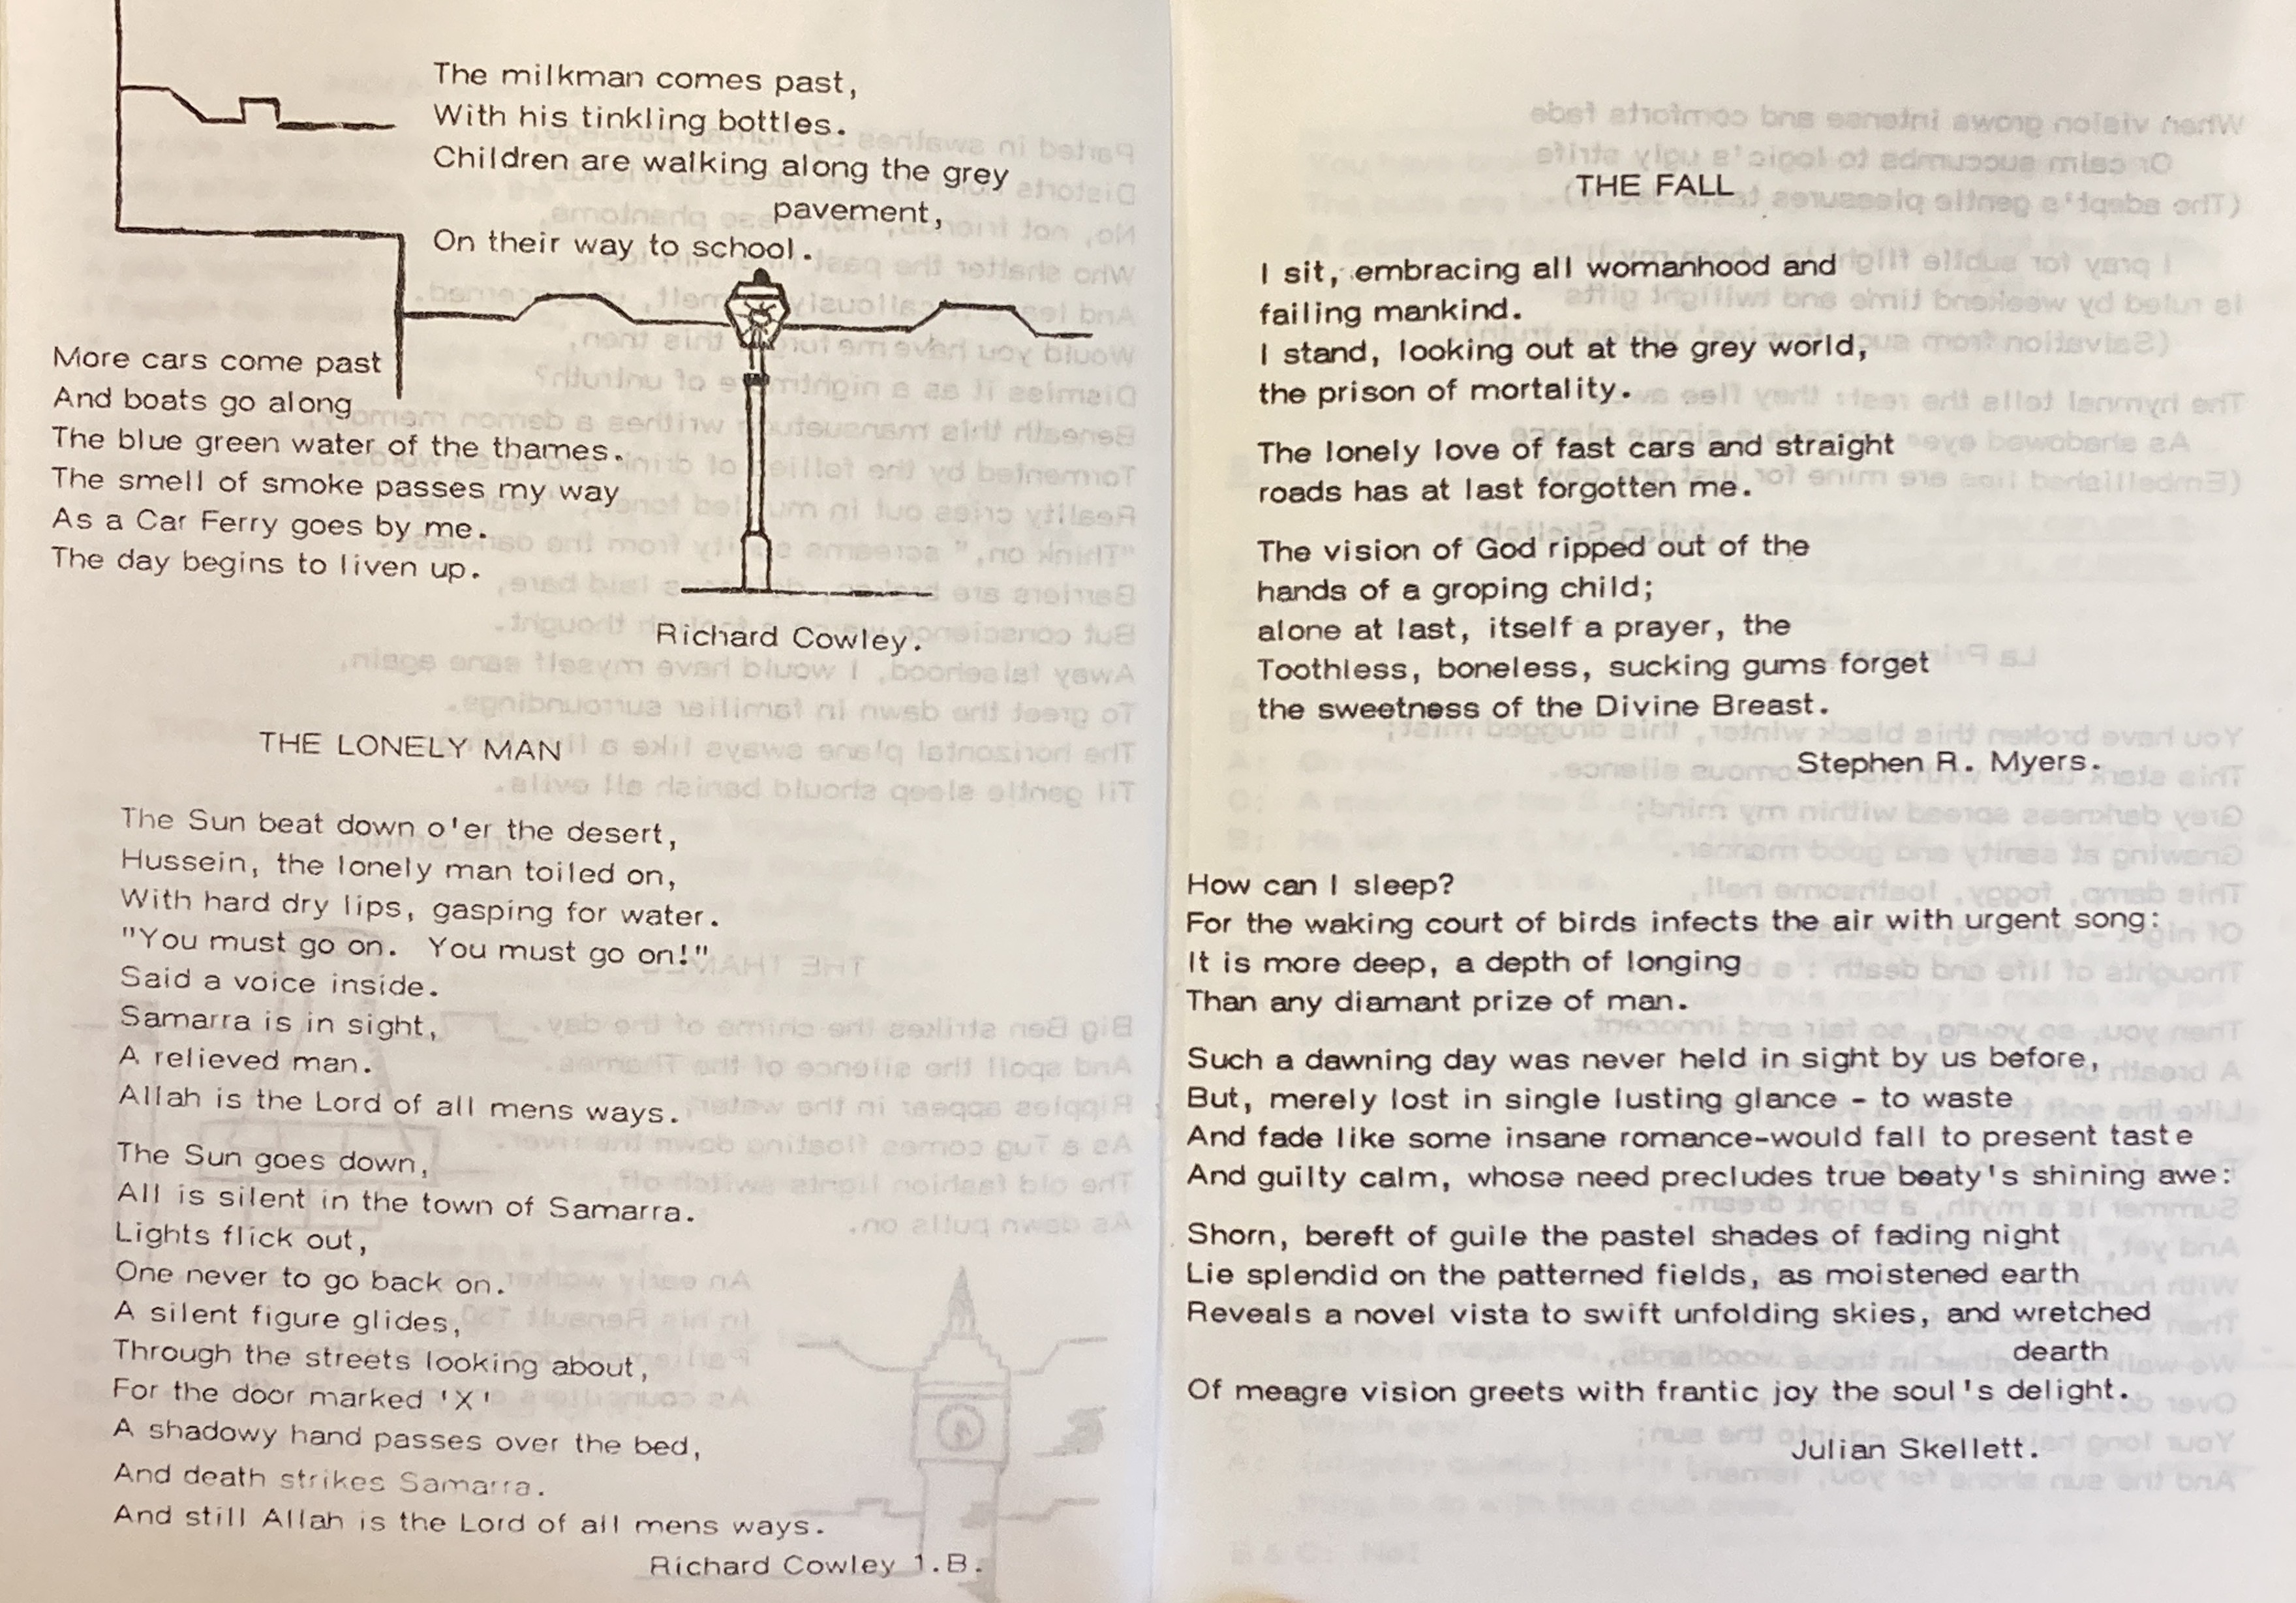 The milkman comes past,
With his tinkling bottles.
Children are walking along the grey
pavement,
On their way to school.
More cars come past
And boats go along
The blue green water of the thames.
The smell of smoke passes my way
As a Car Ferry goes by me.
The day begins to liven up.
Richard Cowley.
THE LONELY MAN
The Sun beat down o'er the desert,
Hussein, the lonely man toiled on,
With hard dry lips, gasping for water.
"You must go on. You must go on!"
Said a voice inside.
Samarra is in sight,
A relieved man.
Allah is the Lord of all mens ways.
The Sun goes down,
All is silent in the town of Samarra.
Lights flick out,
One never to go back on.
A silent figure glides,
Through the streets looking about,
For the door marked 'X'
A shadowy hand passes over the bed,
And death strikes Samarra.
And still Allah is the Lord of all mens ways.
Richard Cowley 1.B.
THE FALL
I sit, embracing all womanhood and
failing mankind.
I stand, looking out at the grey world,
the prison of mortality.
The lonely love of fast cars and straight
roads has at last forgotten me.
The vision of God ripped out of the
hands of a groping child;
alone at last, itself a prayer, the
Toothless, boneless, sucking gums forget
the sweetness of the Divine Breast.
Stephen R. Myers.
How can I sleep?
For the waking court of birds infects the air with urgent song:
It is more deep, a depth of longing
Than any diamant prize of man.
Such a dawning day was never held in sight by us before,
But, merely lost in single lusting glance - to waste
And fade like some insane romance-would fall to present taste
And guilty calm, whose need precludes true beaty's shining awe:
Shorn, bereft of guile the pastel shades of fading night
Lie splendid on the patterned fields, as moistened earth
Reveals a novel vista to swift unfolding skies, and wretched
dearth
Of meagre vision greets with frantic joy the soul's delight.
Julian Skellett.